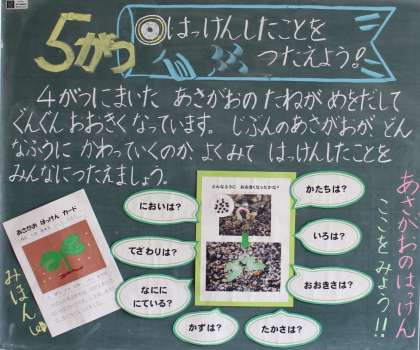 5がつ
はっけんしたことを
つたえよう!
4がつにまいた あさがおの たねが めをだして
ぐんぐん おおきく なっています。 じぶんのあさがおが、どん
なふうに かわっていくのか、よくみて はっけんしたことを
みんなにつたえましょう。
どんなふうに おおきくなったかな?
においは?
てざわりは?
なにに
にている?
かずは?
たかさは?
おおきさは?
いろは?
かたちは?
あさがお はっけん カード
みほん
あさがおのはっけん
ここをみよう!!